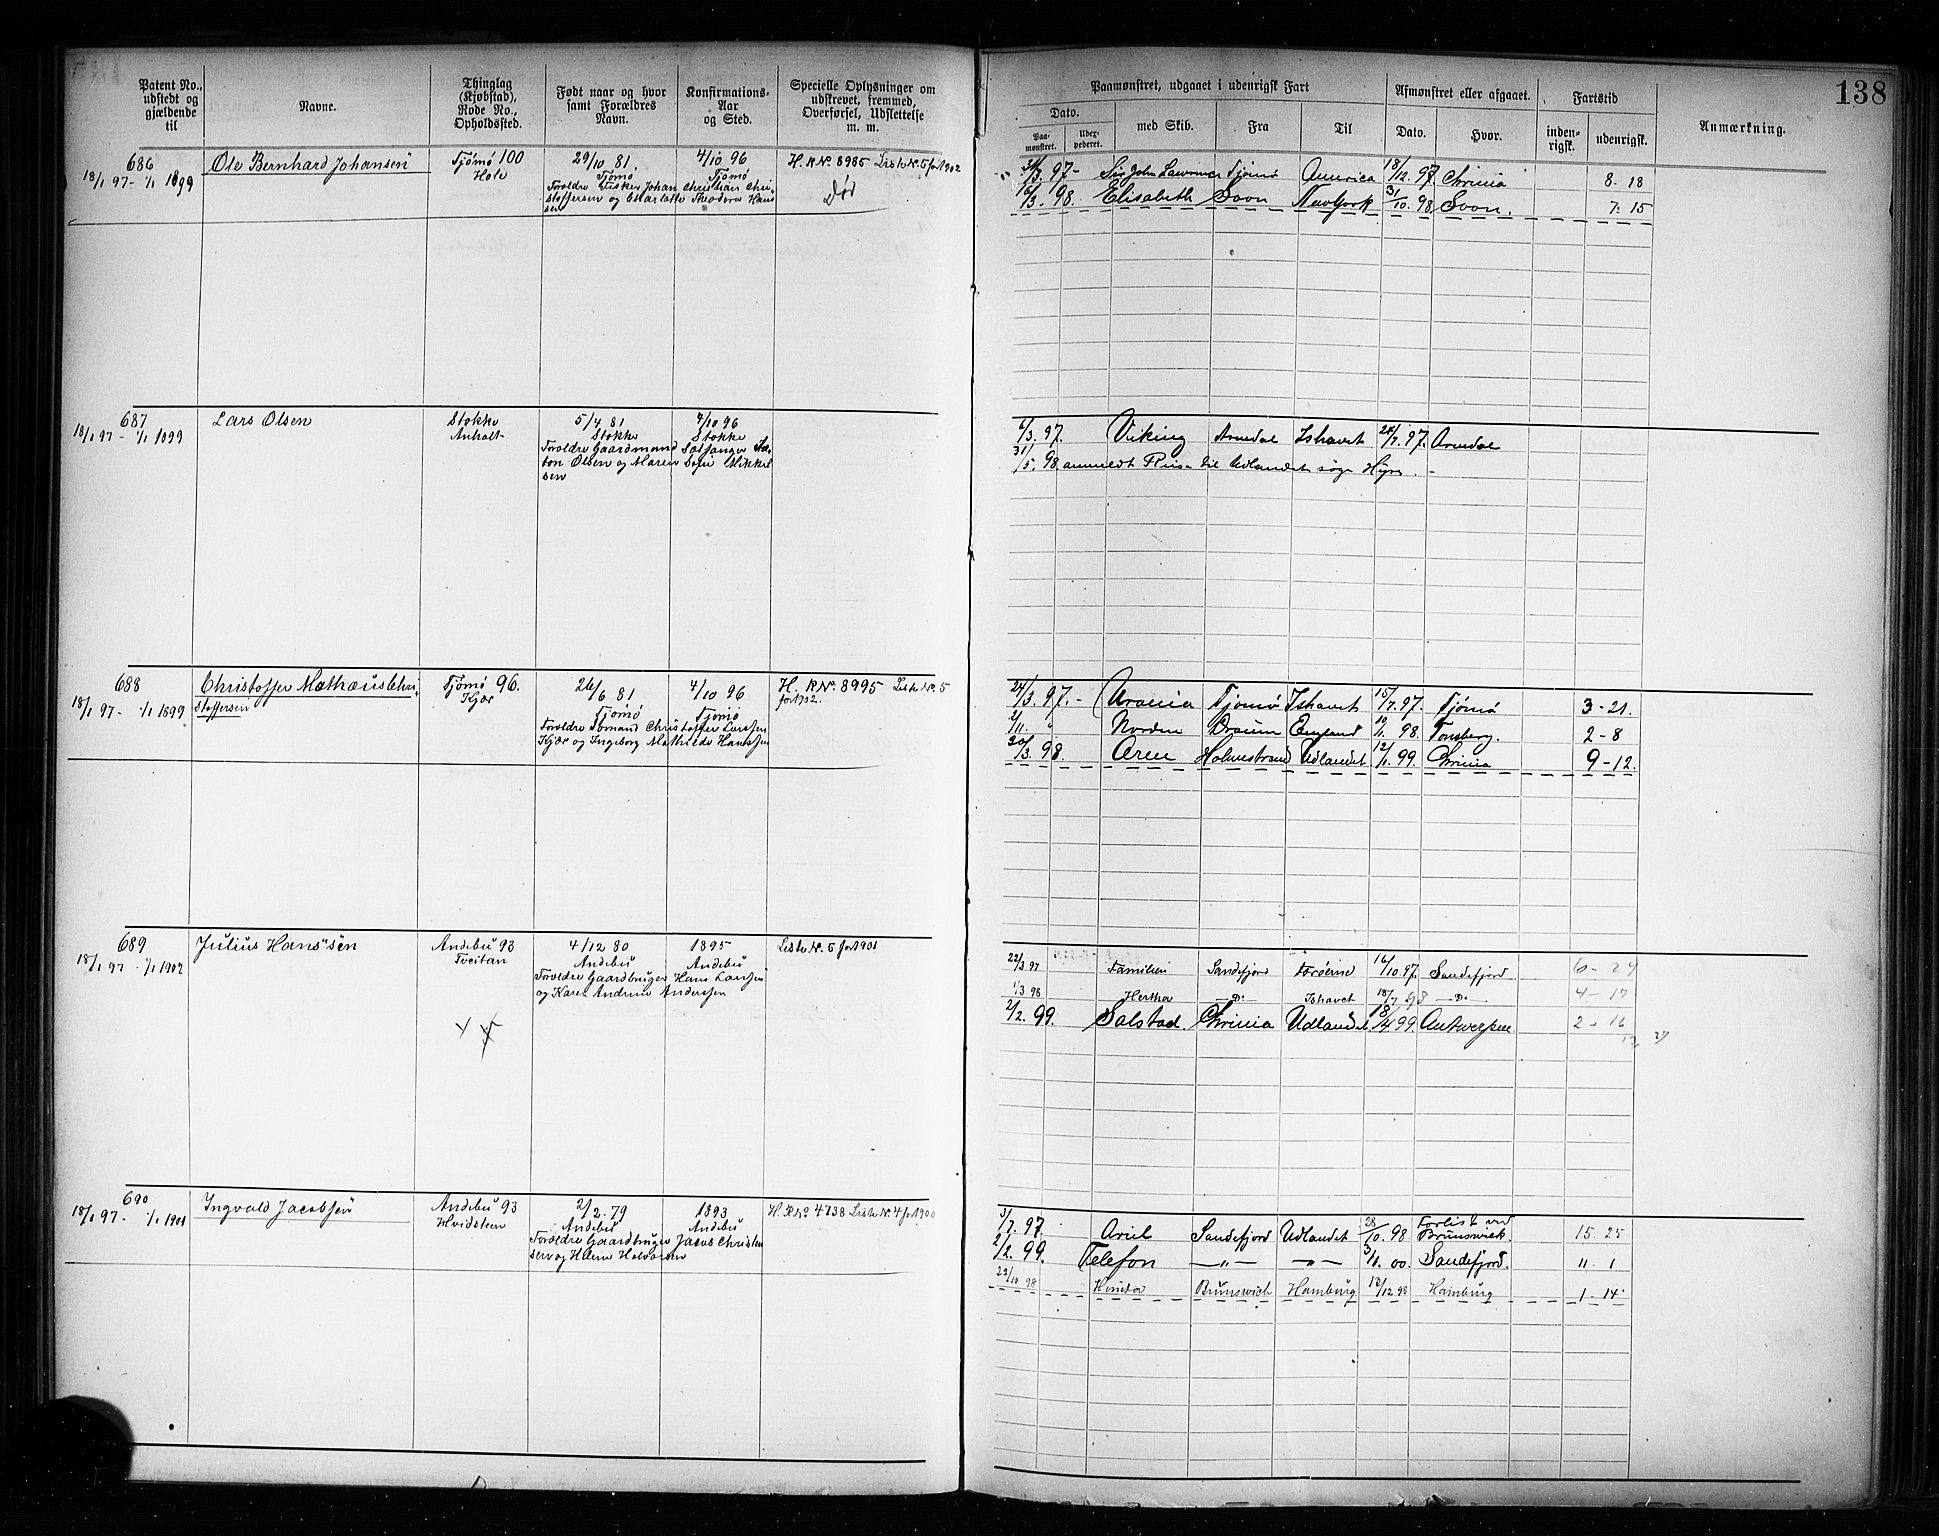 138
Patent No., udstedt og gjældende til
Navne.
Thinglag (Kjøbstad), Rode No., Opholdssted.
Født naar og hvor samt Forældres Navn.
Konfirmations-Aar og Sted.
Specielle Oplysninger om udskrevet, fremmed, Overførsel, Udslettelse m. m.
Paamønstret, udgaaet i udenrigsk Fart
Afmønstret eller afgaaet.
Fartstid
Anmærkning.
Dato.
Paa-mønstret.
med Skib.
Fra
Til
Dato.
Hvor.
inden-rigsk.
udenrigsk.
686
18/1 97 - 1/1 1899
Ole Bernhard Johansen
Tjømø 100
Hole
29/10 81.
Tjømø
4/10 96
Tjømø
Forældre Fisker Johan Christian Chri-
stoffersen og Charlotte Theodora Hans
sen
H. R No. 8985 Liste No. 5 for 1902
Død
97 - Sir John Lawrence Tjømø America 18/12 97 Chrinia 8-18
6/3. 98. Elisabeth Soon New York 31/10. 98 Soon. 7-15
687
18/1 97 - 1/1 1899
Lars Olsen
Stokke
Anholt
5/4 81
Stokke
4/10 96
Stokke
Forældre Gaardmand
Olsen og Maren Sofie Mikkel
sen
6/3. 97. Viking Arendal Ishavet 97. Arendal
31/5. 98 anmeldt Reise til Udlandet søge Hyre. -
688
18/1 97 - 1/1 1899
Christoffer Mathæus Chri-
stoffersen
Tjømø 96.
Kjær
26/6 81
Tjømø
4/10 96
Tjømø
Forældre Tomand Christoffer Larssen
Kjær og Ingeborg Mathilde Hanssen
H. R No. 8995 Liste No. 5
for 1902.
24/3. 97. - Urania Tjømø Ishavet 15/7. 97. Tjømø 3-21.
2/11. Norden England 98. Tonsberg. 2-8
20/3. 98. Aren Holmestrand Udlandet 12/1. 99. Chrinia 9-12.
689
18/1 97 - 1/1 1902
Julius Hanssen
Andebu 93
Tveitan
4/12 80
Andebu
1895
Andebu
Forældre Gaardbruger Hans Larssen
og Karen Andrine Anderssen
Liste No. 5 for 1901
22/3 97 Familien Sandefjord 16/10 97. Sandefjord 6-24
1/3 98 Hertha - Do - Ishavet 18/7 98 - Do - 4-17
2/2. 99. Solstad. Chrinia Udlandet 18/4 99 Antwerpen 2-16
690
18/1 97 - 1/1 1901
Ingvald Jacobsen
Andebu 93
Hvidsteen
2/2. 79
Andebu
1893
Andebu
Forældre Gaardbruger Jacob Christen
sen og Helene Halvorsen
H. R No 4738 Liste No. 4 for 1900
3/7. 97. Ariel Sandefjord Udlandet 28/10. 98 Forlist ved
Brunswick. 15-25
2/2. 99. Telefon - " - - " - 3/11. 00. Sandefjord. 11-1
29/10 98 Brunswich Hamburg 12/12 98 Hamburg 1-14